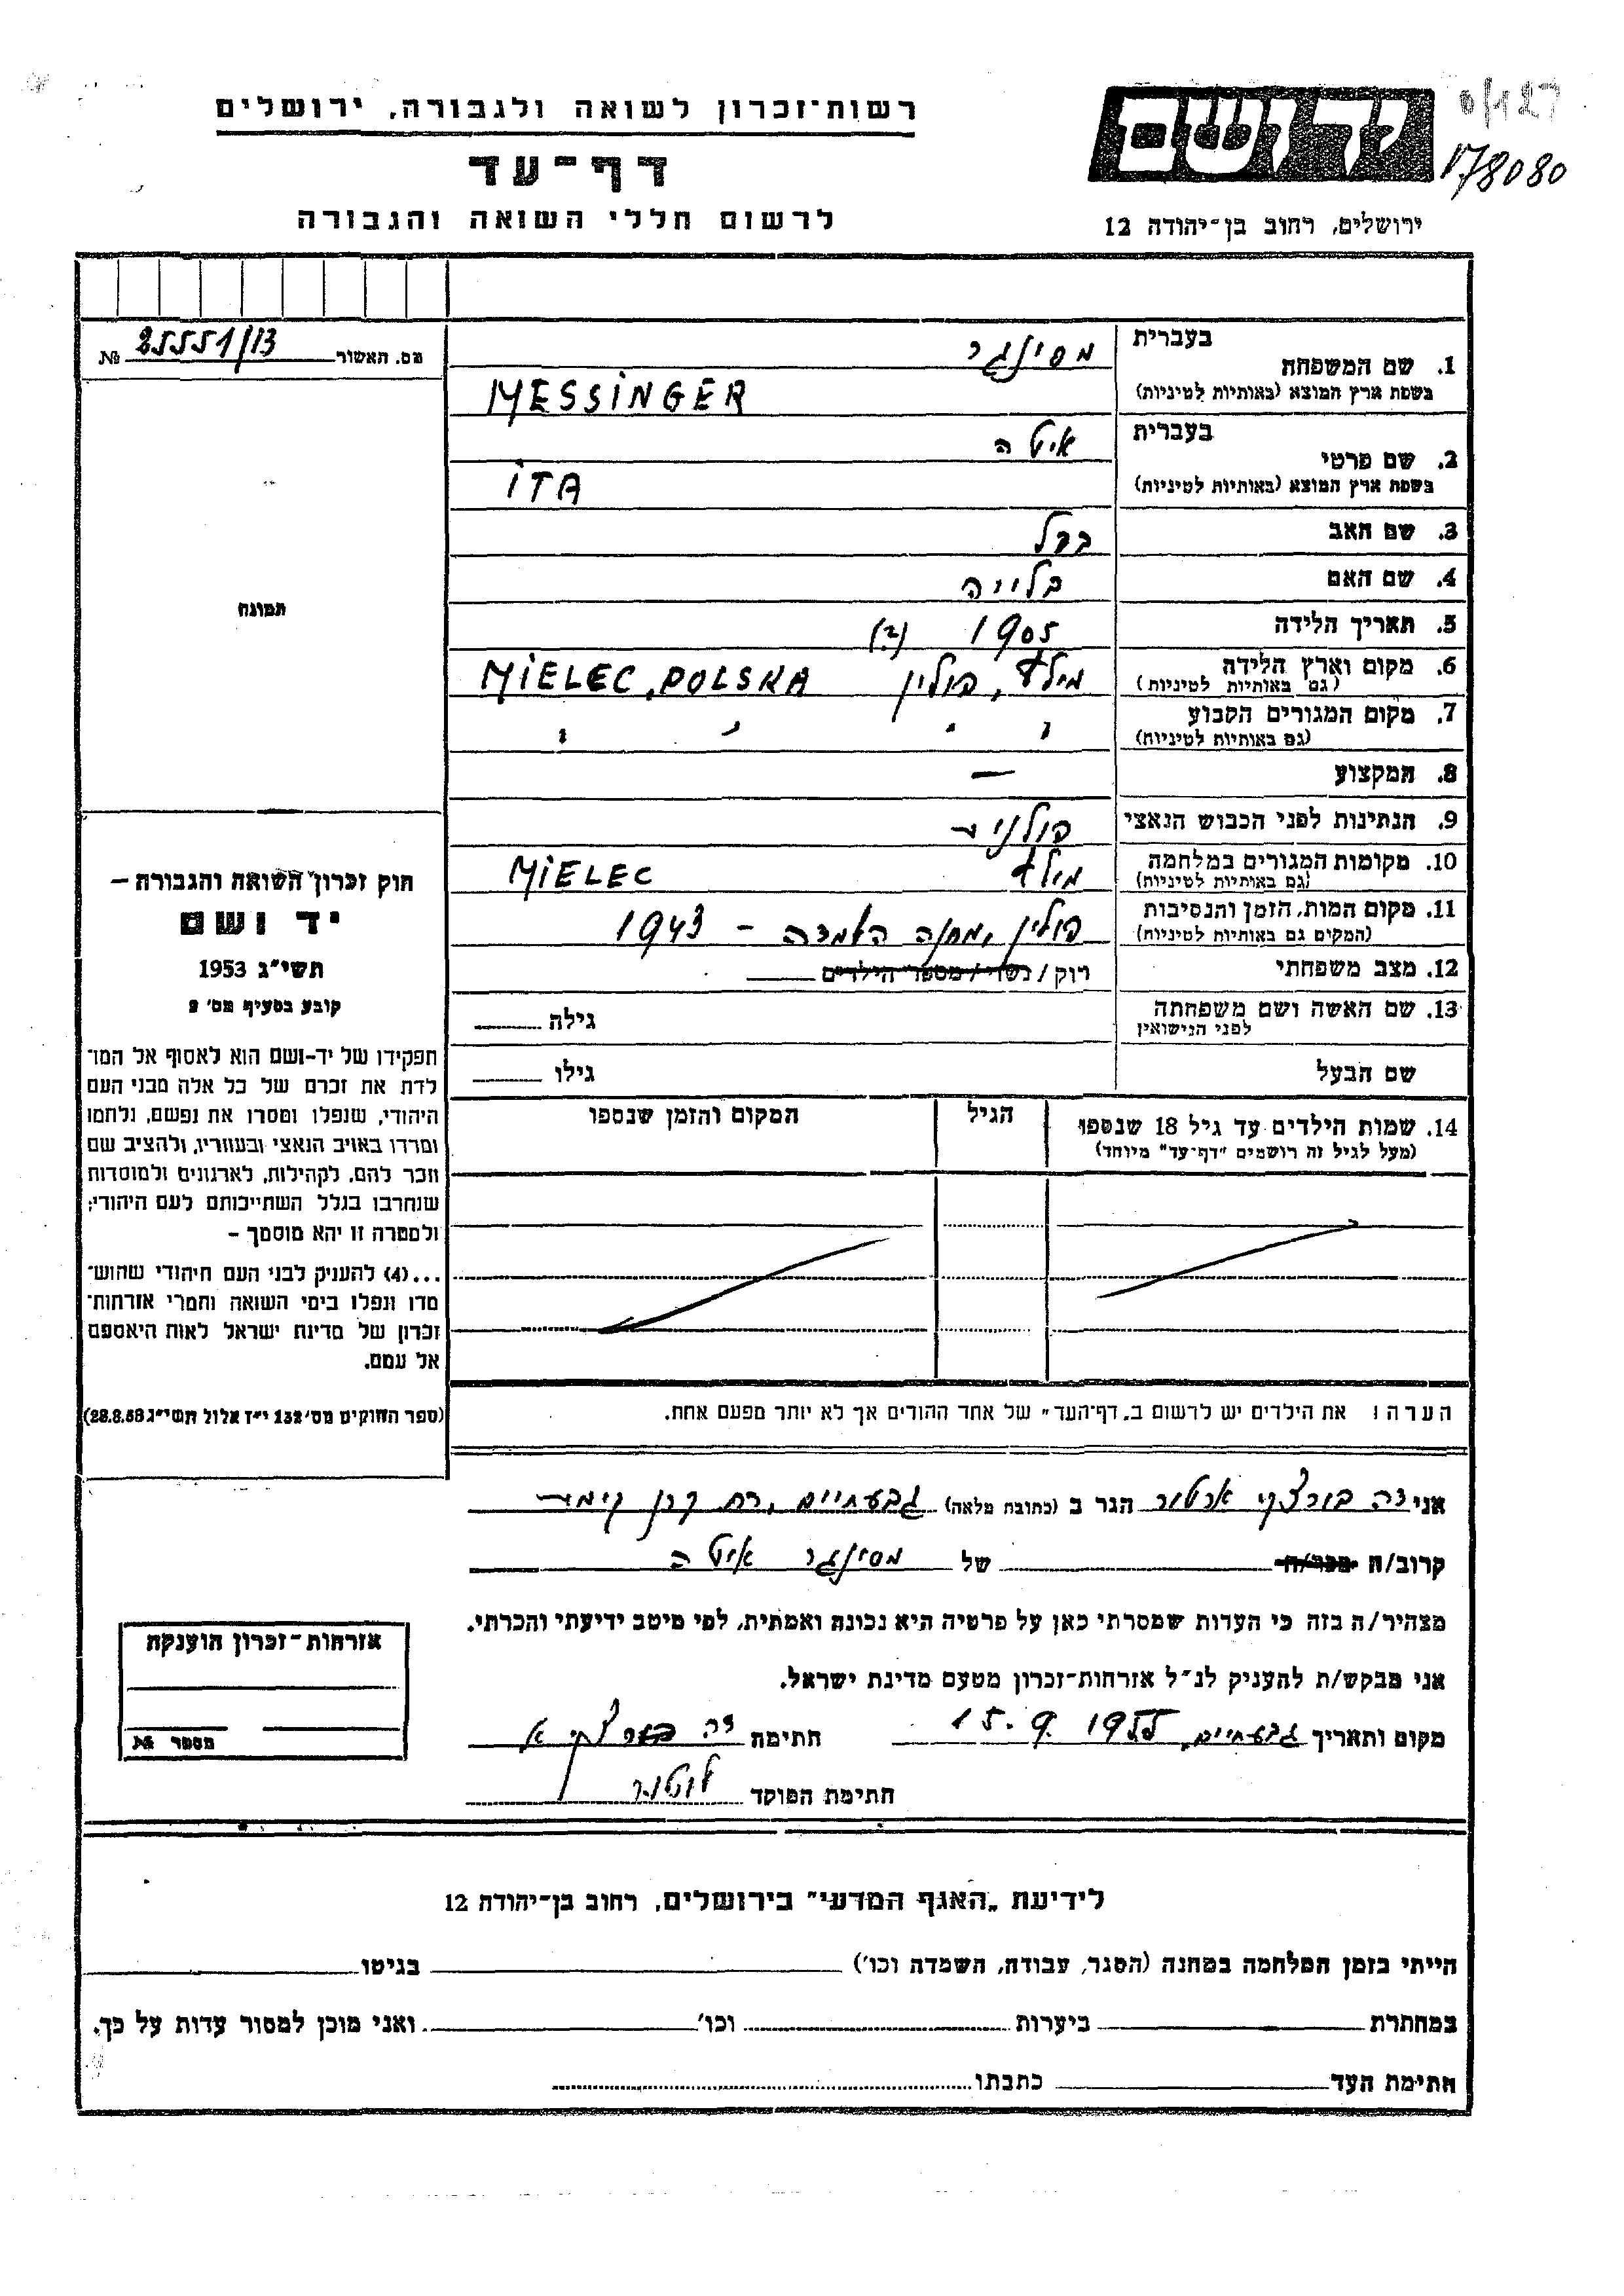 רשות־זכרון לשואה ולגבורה, ירושלים
דף־עד
לרשום חללי השואה והגבורה
יד ושם
178080
ירושלים, רחוב בן־יהודה 12
מס. תאשור 25551/13 №
תמונה
חוק זכרון השואה והגבורה –
יד ושם
תשי״ג 1953
קובע בסעיף מס׳ 2
תפקידו של יד-ושם הוא לאסוף אל המו־
לדת את זכרם של כל אלה מבני העם
היהודי, שנפלו ומסרו את נפשם, נלחמו
ומרדו באויב הנאצי ובעוזריו, ולהציב שם
וזכר להם, לקהילות, לארגונים ולמוסדות
שנחרבו בגלל השתייכותם לעם היהודי;
ולמטרה זו יהא מוסמך –
...(4) להעניק לבני העם היהודי שהוש־
מדו ונפלו בימי השואה והמרי אזרחות־
זכרון של מדינת ישראל לאות היאספם
אל עמם.
(ספר החוקים מס׳ 132 י״ז אלול תשי״ג 28.8.53)
1. שם המשפחה בעברית מסינגר
בשפת ארץ המוצא (באותיות לטיניות) MESSINGER
2. שם פרטי בעברית איטה
בשפת ארץ המוצא (באותיות לטיניות) ITA
3. שם האב
4. שם האם
5. תאריך הלידה 1905 (?)
6. מקום וארץ הלידה מילץ, פולין MIELEC, POLSKA
(גם באותיות לטיניות)
7. מקום המגורים הקבוע " " " "
(גם באותיות לטיניות)
8. המקצוע —
9. הנתינות לפני הכבוש הנאצי פולנית
10. מקומות המגורים במלחמה מילץ MIELEC
(גם באותיות לטיניות)
11. מקום המות, הזמן והנסיבות פולין, מחנה השמדה – 1943
(המקום גם באותיות לטיניות)
12. מצב משפחתי רוק / נשוי / מספר הילדים
13. שם האשה ושם משפחתה גילה
לפני הנישואין
שם הבעל גילו
14. שמות הילדים עד גיל 18 שנספו הגיל המקום והזמן שנספו
(מעל לגיל זה רושמים "דף־עד" מיוחד)
הערה: את הילדים יש לרשום ב„דף־העד" של אחד ההורים אך לא יותר מפעם אחת.
אני ארטור הגר ב (כתובת מלאה) גבעתיים, רח קרן קימת
קרוב/ה מכר/ה של מסינגר איטה
מצהיר/ה בזה כי העדות שמסרתי כאן על פרטיה היא נכונה ואמתית, לפי מיטב ידיעתי והכרתי.
אני מבקש/ת להעניק לנ״ל אזרחות־זכרון מטעם מדינת ישראל.
מקום ותאריך גבעתיים, 15.9.1955 חתימה
חתימת הפוקד
אזרחות־זכרון הוענקה
מספר №
לידיעת „האגף המדעי" בירושלים, רחוב בן־יהודה 12
הייתי בזמן המלחמה במחנה (הסגר, עבודה, השמדה וכו׳) בגיטו
במחתרת ביערות וכו׳ ואני מוכן למסור עדות על כך.
חתימת העד כתבתו